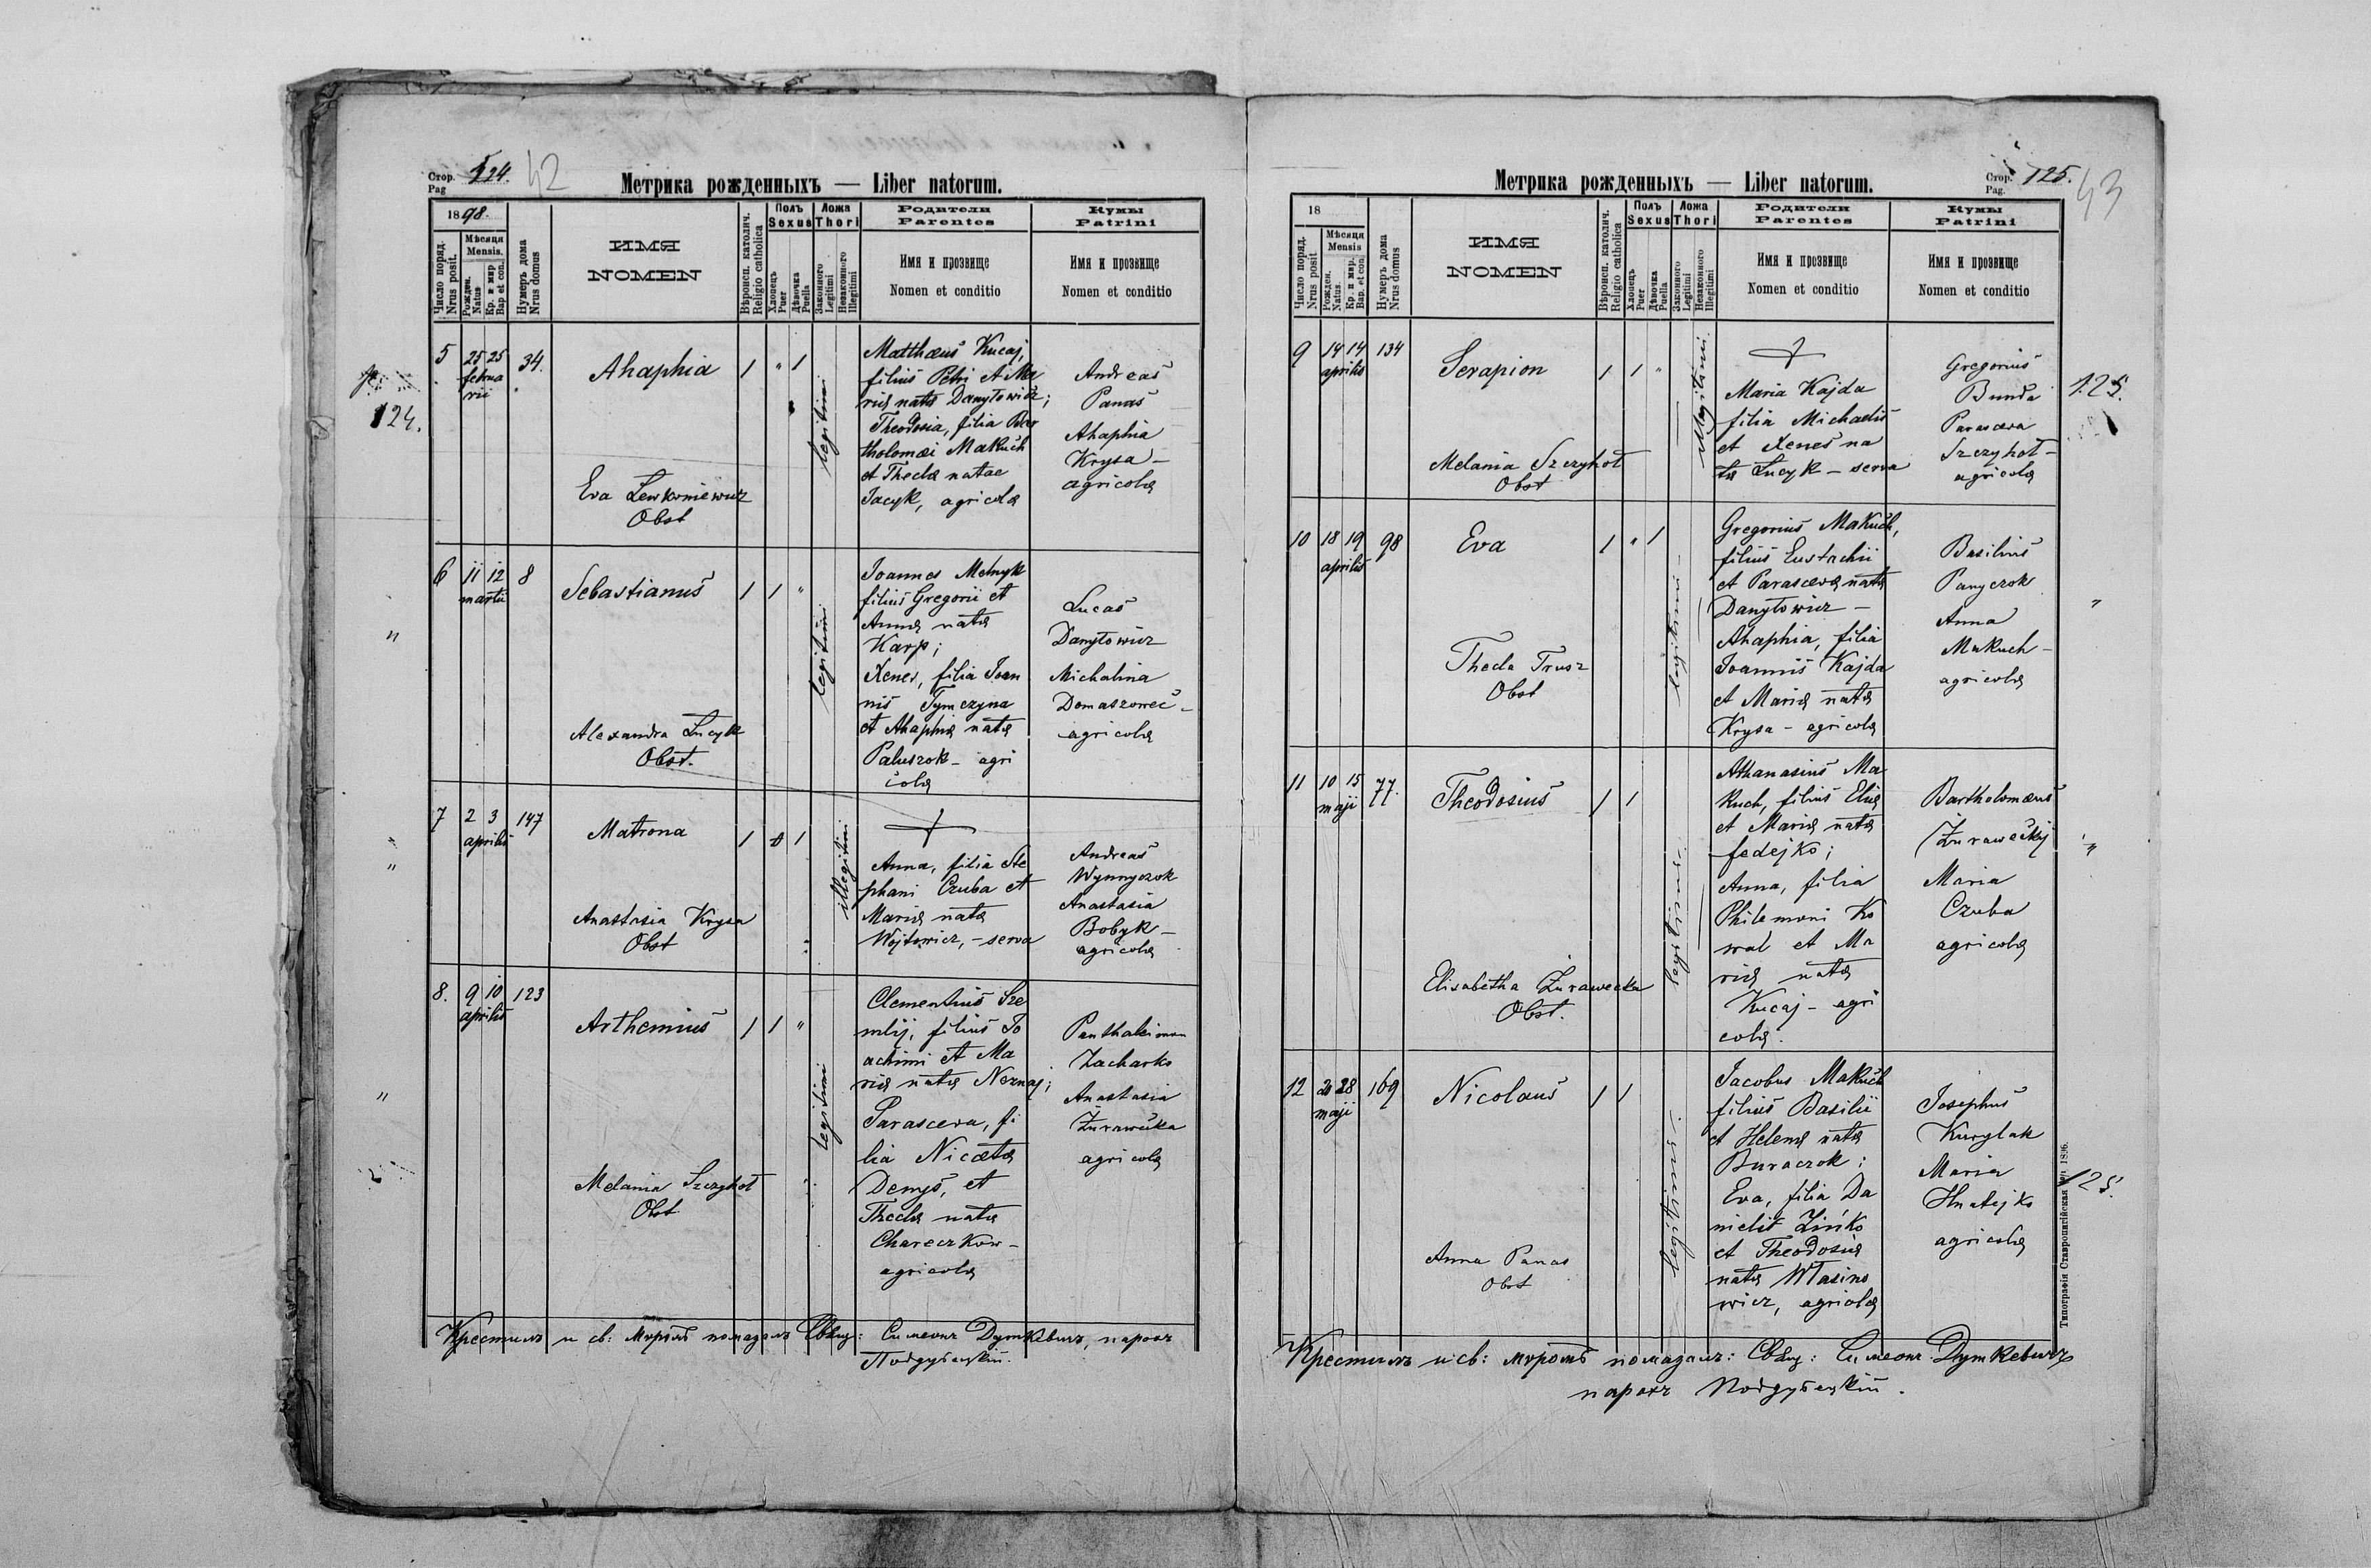 Стор. Pag 124. 42
Метрика рожденныхъ — Liber natorum.
1898.
Число поряд. Nrus posit.
Мѣсяця Mensis.
Рожден. Natus
Кр. и мир. Bap et con.
Нумеръ дома Nrus domus
ИМЯ
NOMEN
Вѣроисп. католич. Religio catholica
Полъ Sexus
Хлопецъ Puer
Дѣвочка Puella
Ложа Thori
Законного Legitimi
Незаконного Illegitimi
Родители
Parentes
Имя и прозвище
Nomen et conditio
Кумы
Patrini
Имя и прозвище
Nomen et conditio
124.
5 25 25 februa
rii
34.
Ahaphia
1 " 1
legitimi
Eva Lewkoniewicz
Obst
Matthaeus Kucaj,
filius Petri et Ma
riæ natæ Danyłowicz;
Theodosia, filia Bar
tholomæi Makuch
et Theclæ natae
Jacyk, agricolæ
Andreas
Panas
Ahaphia
Krysa –
agricolæ
"
6 11 12 martii
8
Sebastianus
1 1 "
legitimi
Alexandra Łucyk
Obst.
Joannes Melnyk
filius Gregorii et
Annæ natæ
Karp;
Xenes, filia Joan
nis Tymczyna
et Ahaphiæ natæ
Paluszok – agri
colæ
Lucas
Danyłowicz
Michalina
Domaszowec –
agricolæ
"
7 2 3 aprilis
147
Matrona
1 " 1
illegitimi
Anastasia Krysa
Obst
Anna, filia Ste
phani Czuba et
Mariæ natæ
Wojtowicz, – serva
Andreas
Wynnyczok
Anastasia
Bobyk –
agricolæ
"
8. 9 10 aprilis
123
Arthemius
1 1 "
legitimi
Melania Szczyhoł
Obst
Clementius Sze
mlij, filius Jo
achimi et Ma
riæ natæ Neznaj;
Parasceva, fi
lia Nicætæ
Demys, et
Theclæ natæ
Chareczkow –
agricolæ
Panthaleimon
Zacharko
Anastasia
Żurawecka
agricolæ
Крестилъ и св: мѵромъ помазалъ Свящ: Симеонъ Дуткевичъ, парохъ
Поддубецкій.
Стор. Pag. 125. 43
Метрика рожденныхъ — Liber natorum.
18
Число поряд. Nrus posit
Мѣсяця Mensis
Рожден. Natus.
Кр. и мир. Bap. et con.
Нумеръ дома Nrus domus
ИМЯ
NOMEN
Вѣроисп. католич. Religio catholica
Полъ Sexus
Хлопецъ Puer
Дѣвочка Puella
Ложа Thori
Законного Legitimi
Незаконного Illegitimi
Родители
Parentes
Имя и прозвище
Nomen et conditio
Кумы
Patrini
Имя и прозвище
Nomen et conditio
9 14 14 aprilis
134
Serapion
1 1 "
illegitimi
Melania Szczyhoł
Obst
Maria Kajda
filia Michaelis
et Xenes na
tæ Łucyk – serva
Gregorius
Bunda
Parasceva
Szczyhoł –
agricolæ
125.
10 18 19 aprilis
98
Eva
1 " 1
legitimi
Thecla Trusz
Obst
Gregorius Makuch,
filius Eustachii
et Parascevæ natæ
Danyłowicz –
Ahaphia, filia
Joannis Kajda
et Mariæ natæ
Krysa – agricolæ
Basilius
Panyczok
Anna
Makuch –
agricolæ
"
11 10 15 maji
77.
Theodosius
1 1
legitimi
Elisabetha Żurawecka
Obst.
Athanasius Ma
kuch, filius Eliæ
et Mariæ natæ
Fedejko;
Anna, filia
Philemoni Ko
wal et Ma
riæ natæ
Kucaj – agri
colæ.
Bartholomæus
Żuraweckyj
Maria
Czuba
agricolæ
"
12 28 maji
169
Nicolaus
1 1
legitimi
Anna Panas
Obst
Jacobus Makuch
filius Basilii
et Helenæ natæ
Buraczok;
Eva, filia Da
nielis Zińko
et Theodosiæ
natæ Własino
wicz, agricolæ
Josephus
Kurylak
Maria
Hnatejko
agricolæ
125.
Крестилъ и св: мѵромъ помазалъ: Свящ: Симеонъ Дуткевичъ
парохъ Поддубецкій.
Типографія Ставропигійская 1896.